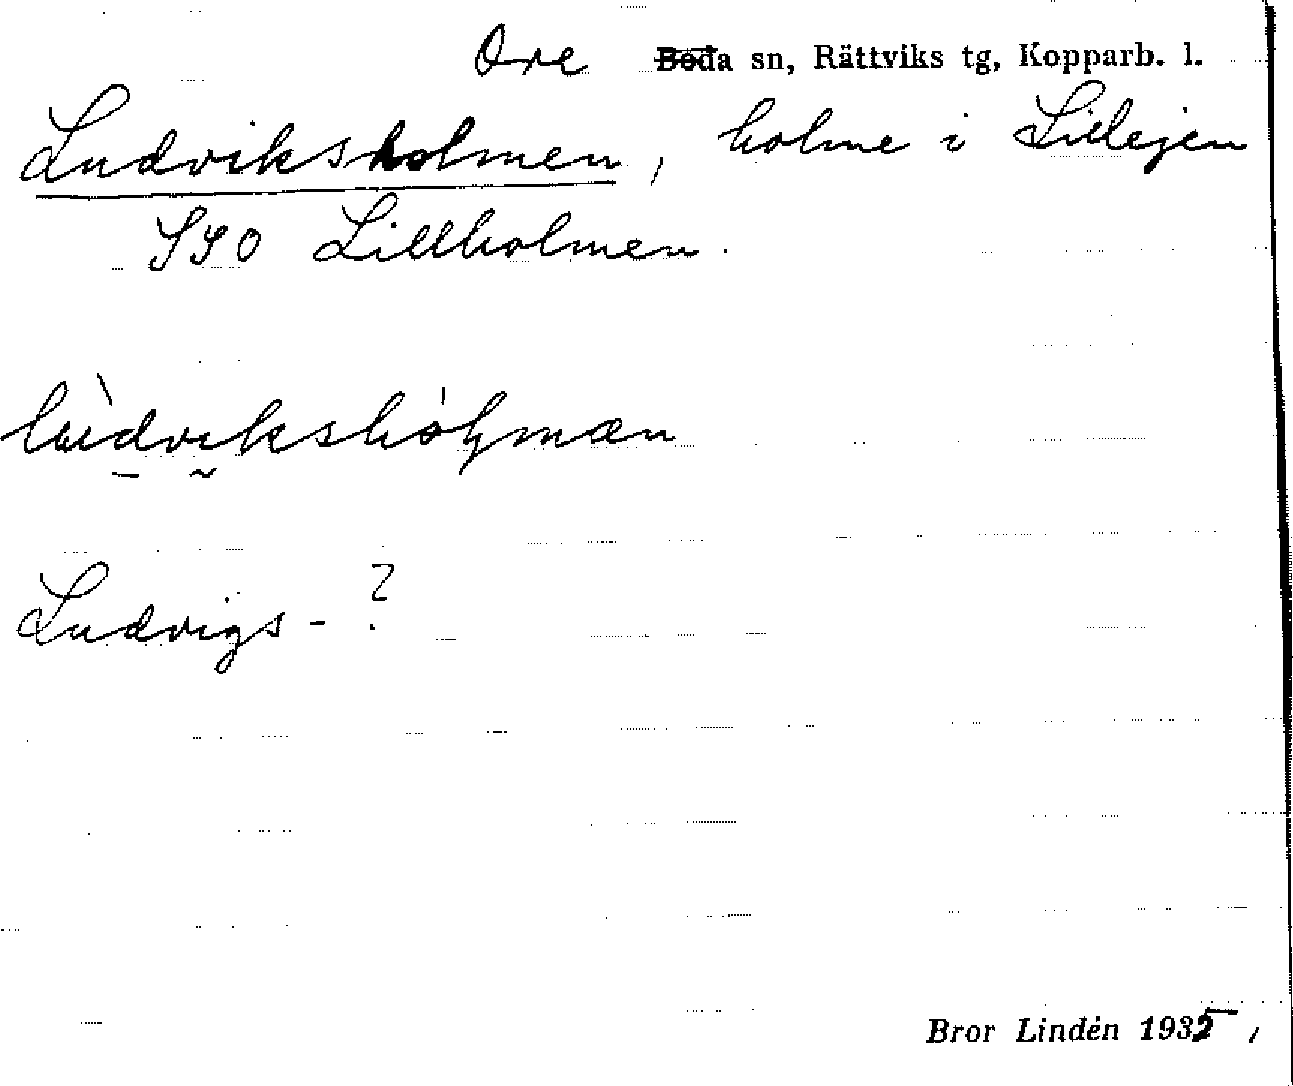 Ore Boda sn, Rättviks tg, Kopparb. l.
Ludviksholmen, holme i Lillejen
SSO Lillholmen.
Ludvigs- ?
Bror Lindén 1935